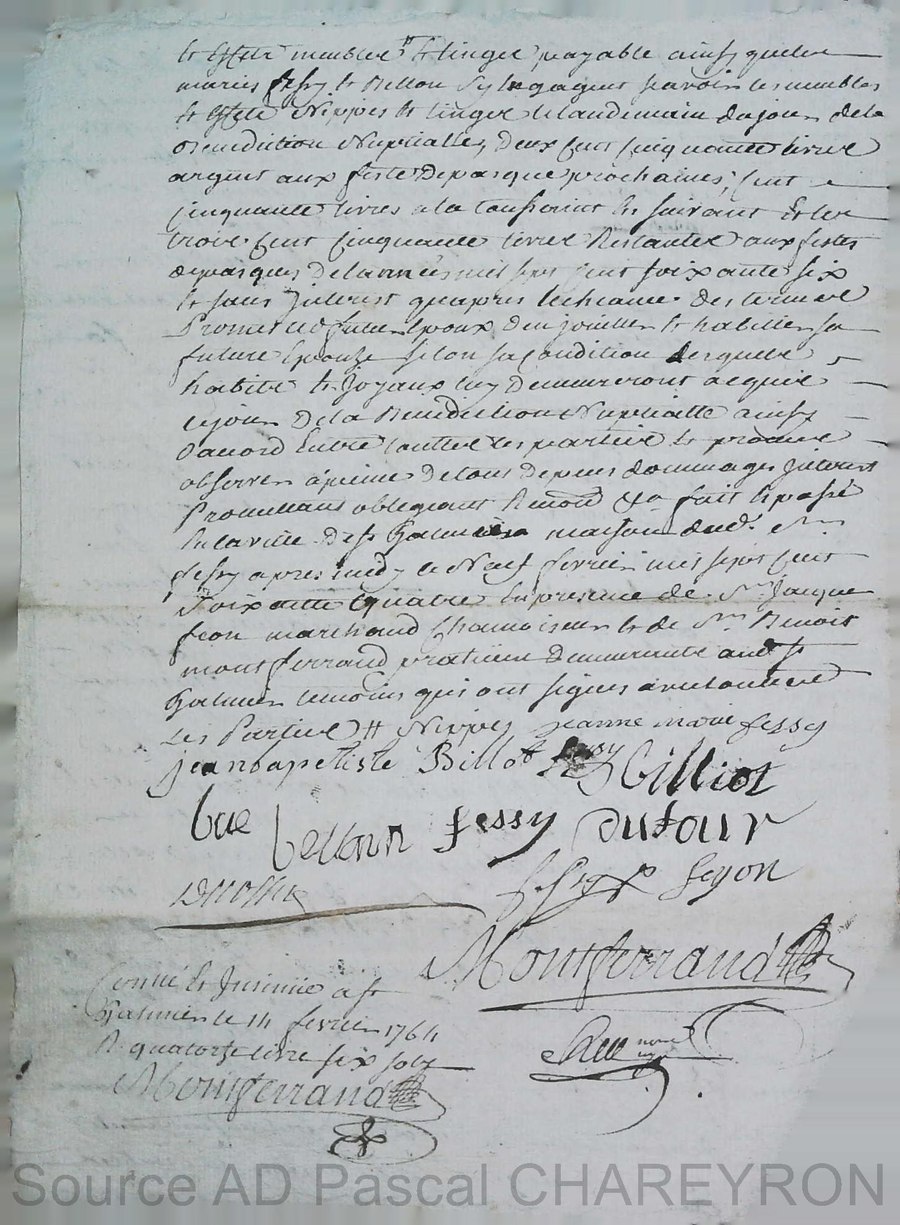 et effets meubles et linges payable ainsy que les
maries fessy et Billon sy engagent savoir les meubles
et effets Nippes et linges le landemain du jour de la
Benediction Nuptialle, deux cent cinquante livres
argent aux festes de pasque prochaines, cent
cinquante livres a la toussaint et suivant et les
trois cent cinquante livres Restantes aux festes
de pasques de lannée mil sept cent soixante six
et sans jnterest quapres lecheance des termes
Promet led futur Epoux denjoailler et habiller sa
future Epouze selon sa condition lesquels
habits et Joyaux luy demeureront acquis
le jour de la Benediction Nuptialle ainsy
daccord Entre toutes les parties et promis
observer a peine de tous depens dommages jnterest
Promettans obligeant Renond &a fait et passé
En la ville de st Galmier maison dud. sr
fessy apres midy le Neuf fevrier mil sept cent
Soixante Quatre En presence de Sr. Jacque
feon marchand chamoiseur et de Sr. Benoit
montferrand praticien demeurants aud st
Galmier temoins qui ont signes avec toutes
Les Parties # Nippes jeanne marie fessy
jean bapetiste Billot fessy Billiot
Bue Bellonn fessy dufour
fessy feyon
Montferrand
Conllé et Jnsinué a st
Galmier le 14 fevrier 1764
R. quatorze livre six sols
Montferrand
Source AD Pascal CHAREYRON